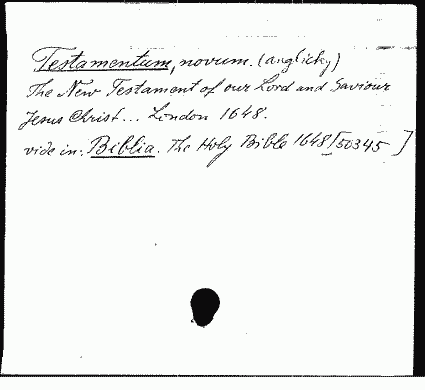 Testamentum, novum. (anglicky)
The New Testament of our Lord and Saviour
Jesus Christ... London 1648.
vide in: Biblia. The Holy Bible 1648 [50345 ]